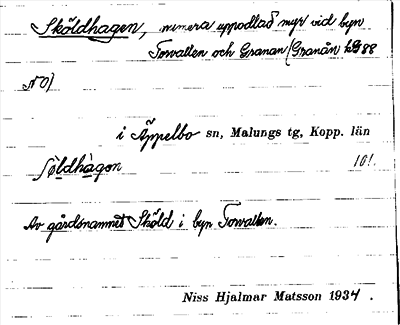 Sköldhagen, numera uppodlad myr vid byn
Torvallen och Granan (Granån
NO)
i Äppelbo sn, Malungs tg, Kopp. län
101.
Av gårdsnamnet Sköld i byn Torvallen.
Niss Hjalmar Matsson 1934.